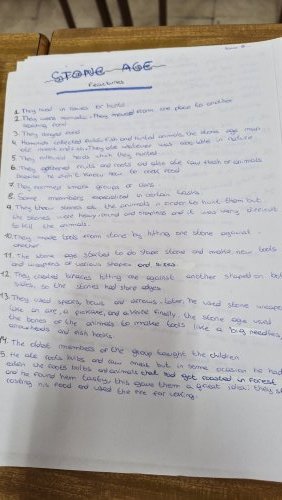 STONE AGE
Features
1. They lived in caves or huts
2. They were nomadic. They moved from one place to another
seeking food
3. They hunted food
4. Hominids collected fruits, fish and hunted animals, the stone age man
ate meat and fish. They ate whatever was available in nature
5. They collected herds which they
6. They gathered fruits and roots and also ate raw flesh of animals
because he didn't know how to roast food
7. They formed small groups or clans
8. Some members specialised in certain tasks
9. They threw stones at the animals in order to hunt them but
the stones were heavy, blind and and it was very difficult
to kill the animals.
10. They made tools from stone by hitting one stone against
another
11. The stone age started to do shape stone and make new tools
and weapons of various shapes and sizes.
12. They created hitting one against another shaped on both
sides, so the stones had sharp edges.
13. They used spears, bows and arrows. Later, he used stone weapons
like an axe, a pickaxe, and a knife. Finally, the stone age used
the bones of the animals to make tools like a big needles,
arrowheads and fish hooks.
14. The oldest members of the group taught the children
5. He ate roots, bulbs and raw meat but in some occasion he had
eaten the roots bulbs and animals that had got roasted in forest
and he found them tasty, this gave them a great idea: they
roasting his food and used the fire for